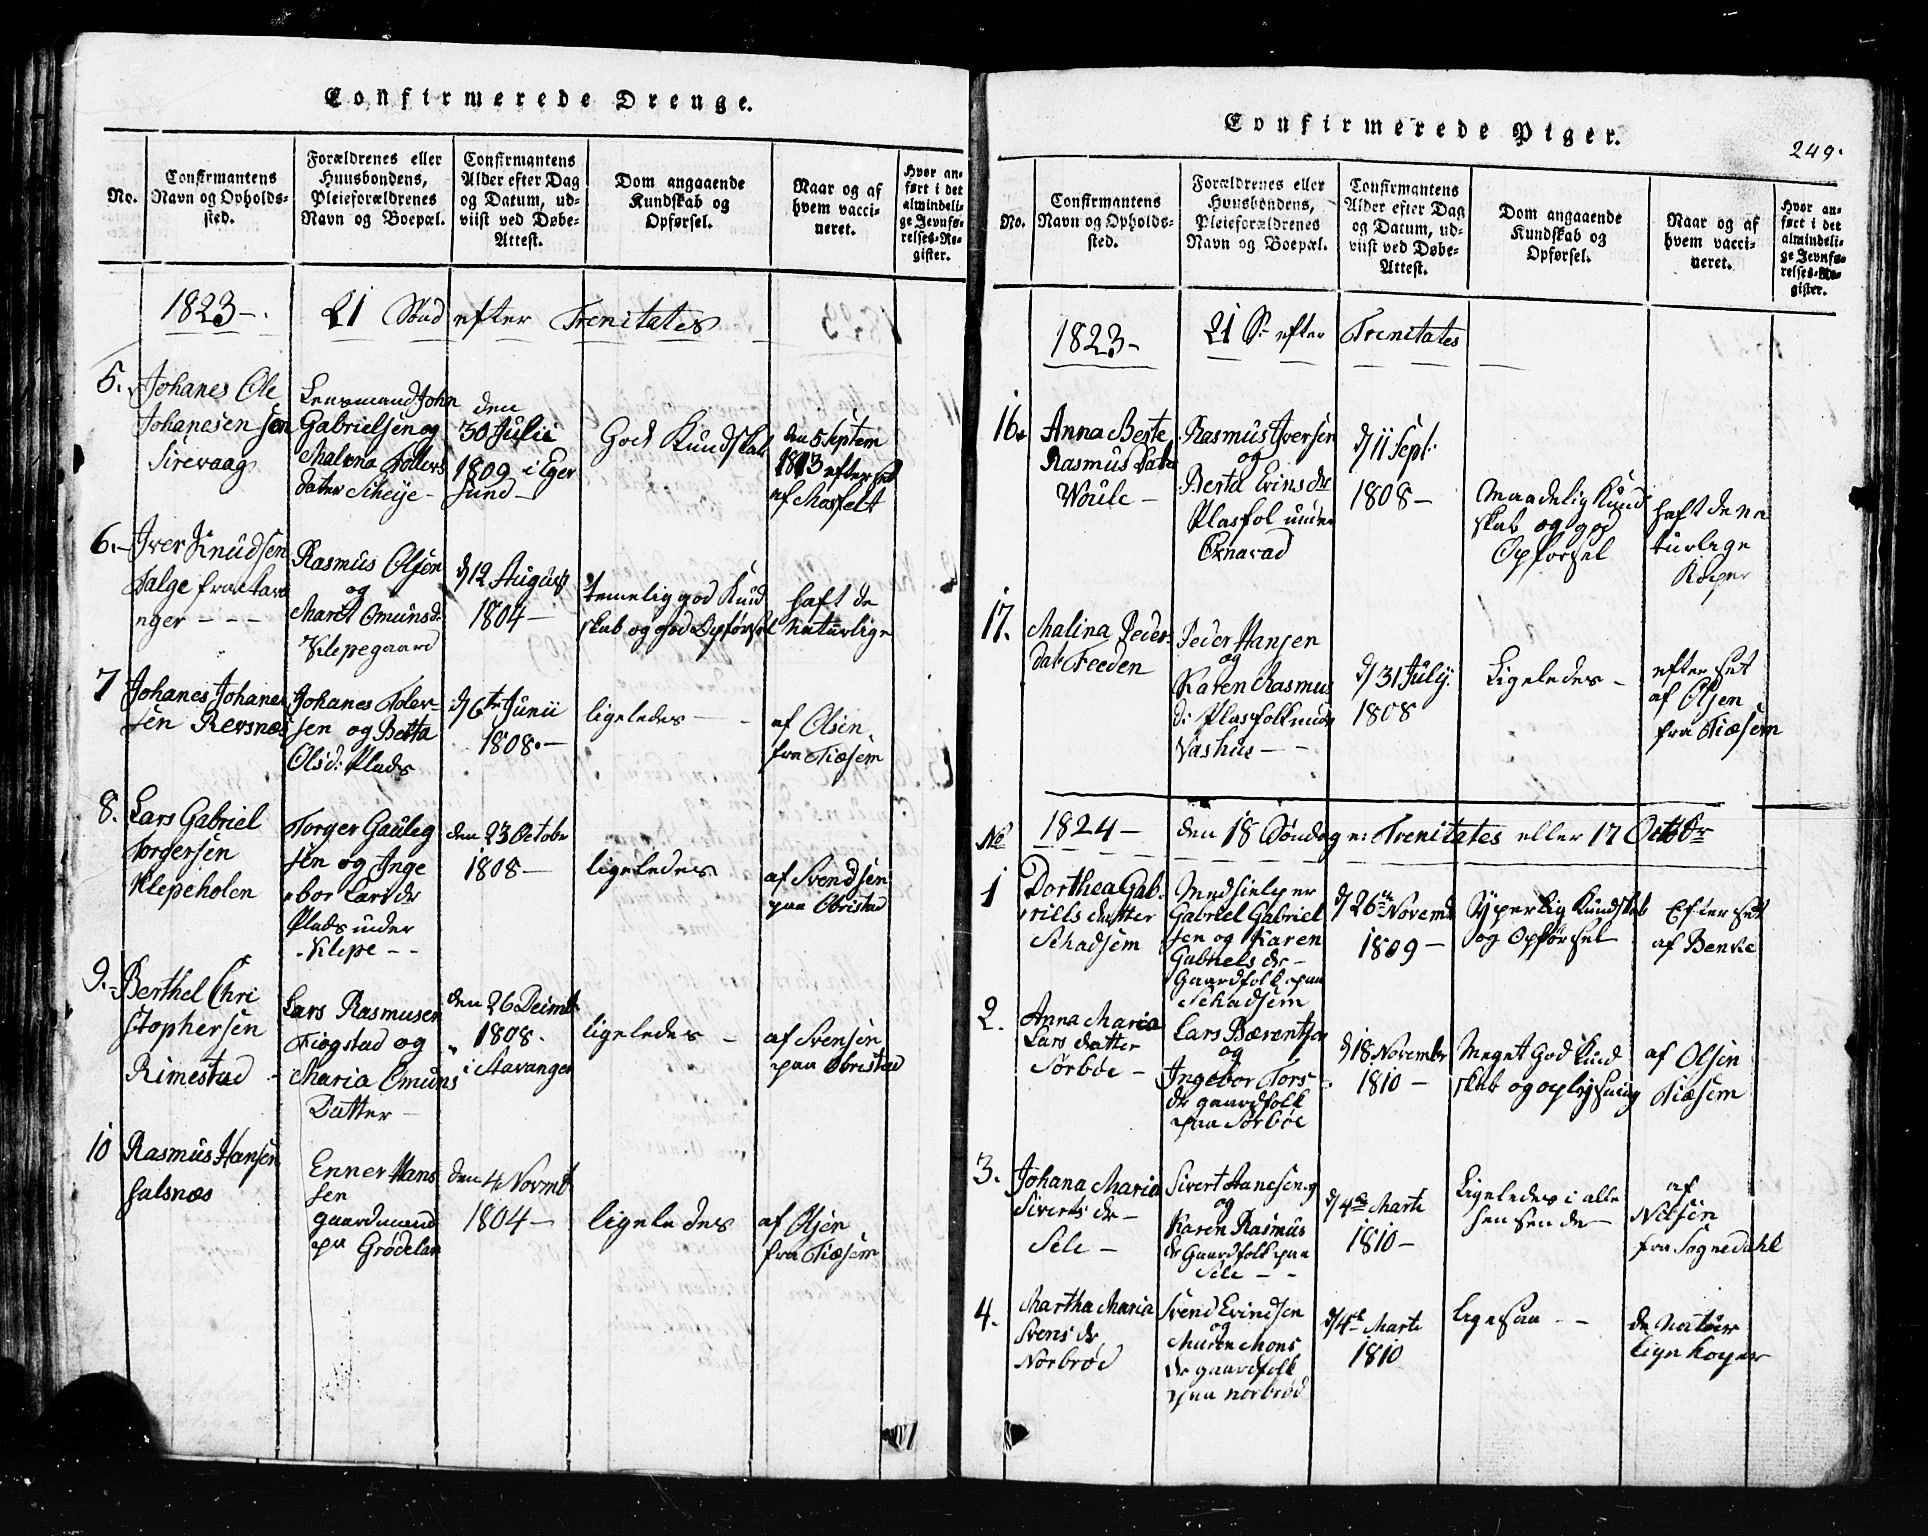 Confirmerede Drenge.
No.
Confirmantens
Navn og Opholds-
sted.
Forældrenes eller
Huusbondens,
Pleieforældrenes
Navn og Boepæl.
Confirmantens
Alder efter Dag
og Datum, ud-
viist ved Døbe-
Attest.
Dom angaaende
Kundskab og
Opførsel.
Naar og af
hvem vacci-
neret.
Hvor an-
ført i det
almindeli-
ge Jevnfø-
relses-Re-
gister.
1823 -
21 Sønd efter Trenitates
5.
Johanes Ole
Johanesen sen
Sirevaag
Lensmand John
Gabrielsen og
Malena Tollevs
dater Scheije -
den
30 Julii
1809 i Eger
sund -
God Kundskab
den 5 Septem
1813 efter set
af Mosfelt
6. -
Iver Knudsen
Salge fra Stava
nger - - -
Rasmus Olsen
og
Maret Omunsd:
Klepegaard
d/ 12 August
1804 -
temelig god Kund
skab og god Opførsel
haft de
Naturlige
7
Johanes Johanes
sen Revsnæs
Johanes Toler-
sen og Berta
Olsd: Plads
d/ 6te Junii
1808. -
ligeledes - -
af Olsen
fra Tiæsem
8.
Lars Gabriel
Torgersen
Klepeholen
Torger Gauleg
sen og Inge
bor Larsdr
Plads under
Klepe - -
den 23 Octobr
1808 -
ligeledes
af Svendsen
paa Obristad
9. -
Berthel Chri
stophersen
Rimestad -
Lars Rasmusen
Tiøgstad og
Maria Omuns
Datter -
den 26 Deimbr
1808.
i Stavanger
ligeledes -
af Svensen
paa Obristad
10
Rasmus Hansen
Salsnæs
Enner Hans
sen
gaardmand
pa Grødelan
den 4 Novmb
1804 -
ligeledes
af Olsen
fra Tiæsem
Confirmerede Piger.
249.
No.
Confirmantens
Navn og Opholds-
sted.
Forældrenes eller
Huusbondens,
Pleieforældrenes
Navn og Boepæl.
Confirmantens
Alder efter Dag
og Datum, ud-
viist ved Døbe-
Attest.
Dom angaaende
Kundskab og
Opførsel.
Naar og af
hvem vacci-
neret.
Hvor an-
ført i det
almindeli-
ge Jevnfø-
relses-Re-
gister.
1823 -
21 S- efter Trenitates
16.
Anna Berte
Rasmus Dater
Woule -
Rasmus Iversen
og
Berta Evinsdr
Plasfol under
Oznavad
d/ 11 Sept:
1808 -
Maadelig Kund
skab og god
Opførsel
haft de na
turlige
Koper
17.
Malina Peders
dat: Feeden
Peder Hansen
og
Karen Rasmus
d: Plasfolk unde
Vashus - -
d/ 31 July.
1808
Ligeledes -
efter set
af Olsen
fra Tiæsem
No
1824 -
den 18 Søndag e: Trenitates eller 17 Octobr
1
Dorthea Gab-
riels datter
Schadsem
Medhielper
Gabriel Gabriel
sen og Karen
Gabriels dr -
Gaardfolk paa
Schadsem
d/ 26de Novemb
1809 -
Yperlig Kundskab
og Opførsel
Efter set
af Benke
2.
Anna Maria
Lars datter
Sørbøe -
Lars Bærentsen
og
Ingebor Tors-
dr gaardfolk
paa Sørbøe
d/ 18 Novembr
1810 -
Meget God Kund
skab og oplysning
af Olsen
Tiæsem
3.
Johana Maria
Siverts dr -
Sele -
Sivert Hanesen
og
Karen Rasmus
dr Gaardfolk paa
Sele - -
d/ 4de Marti
1810 -
Ligeledes i alle
hensende -
af
Nilsen
fra Sognedahl
4.
Martha Maria
Svens dr
Norbrød
Svend Evindsen
og
Maren Mons
dr gaardfolk
paa norbrød
d/ 4de Marti
1810
Ligesaa - -
de Natur
lign koper